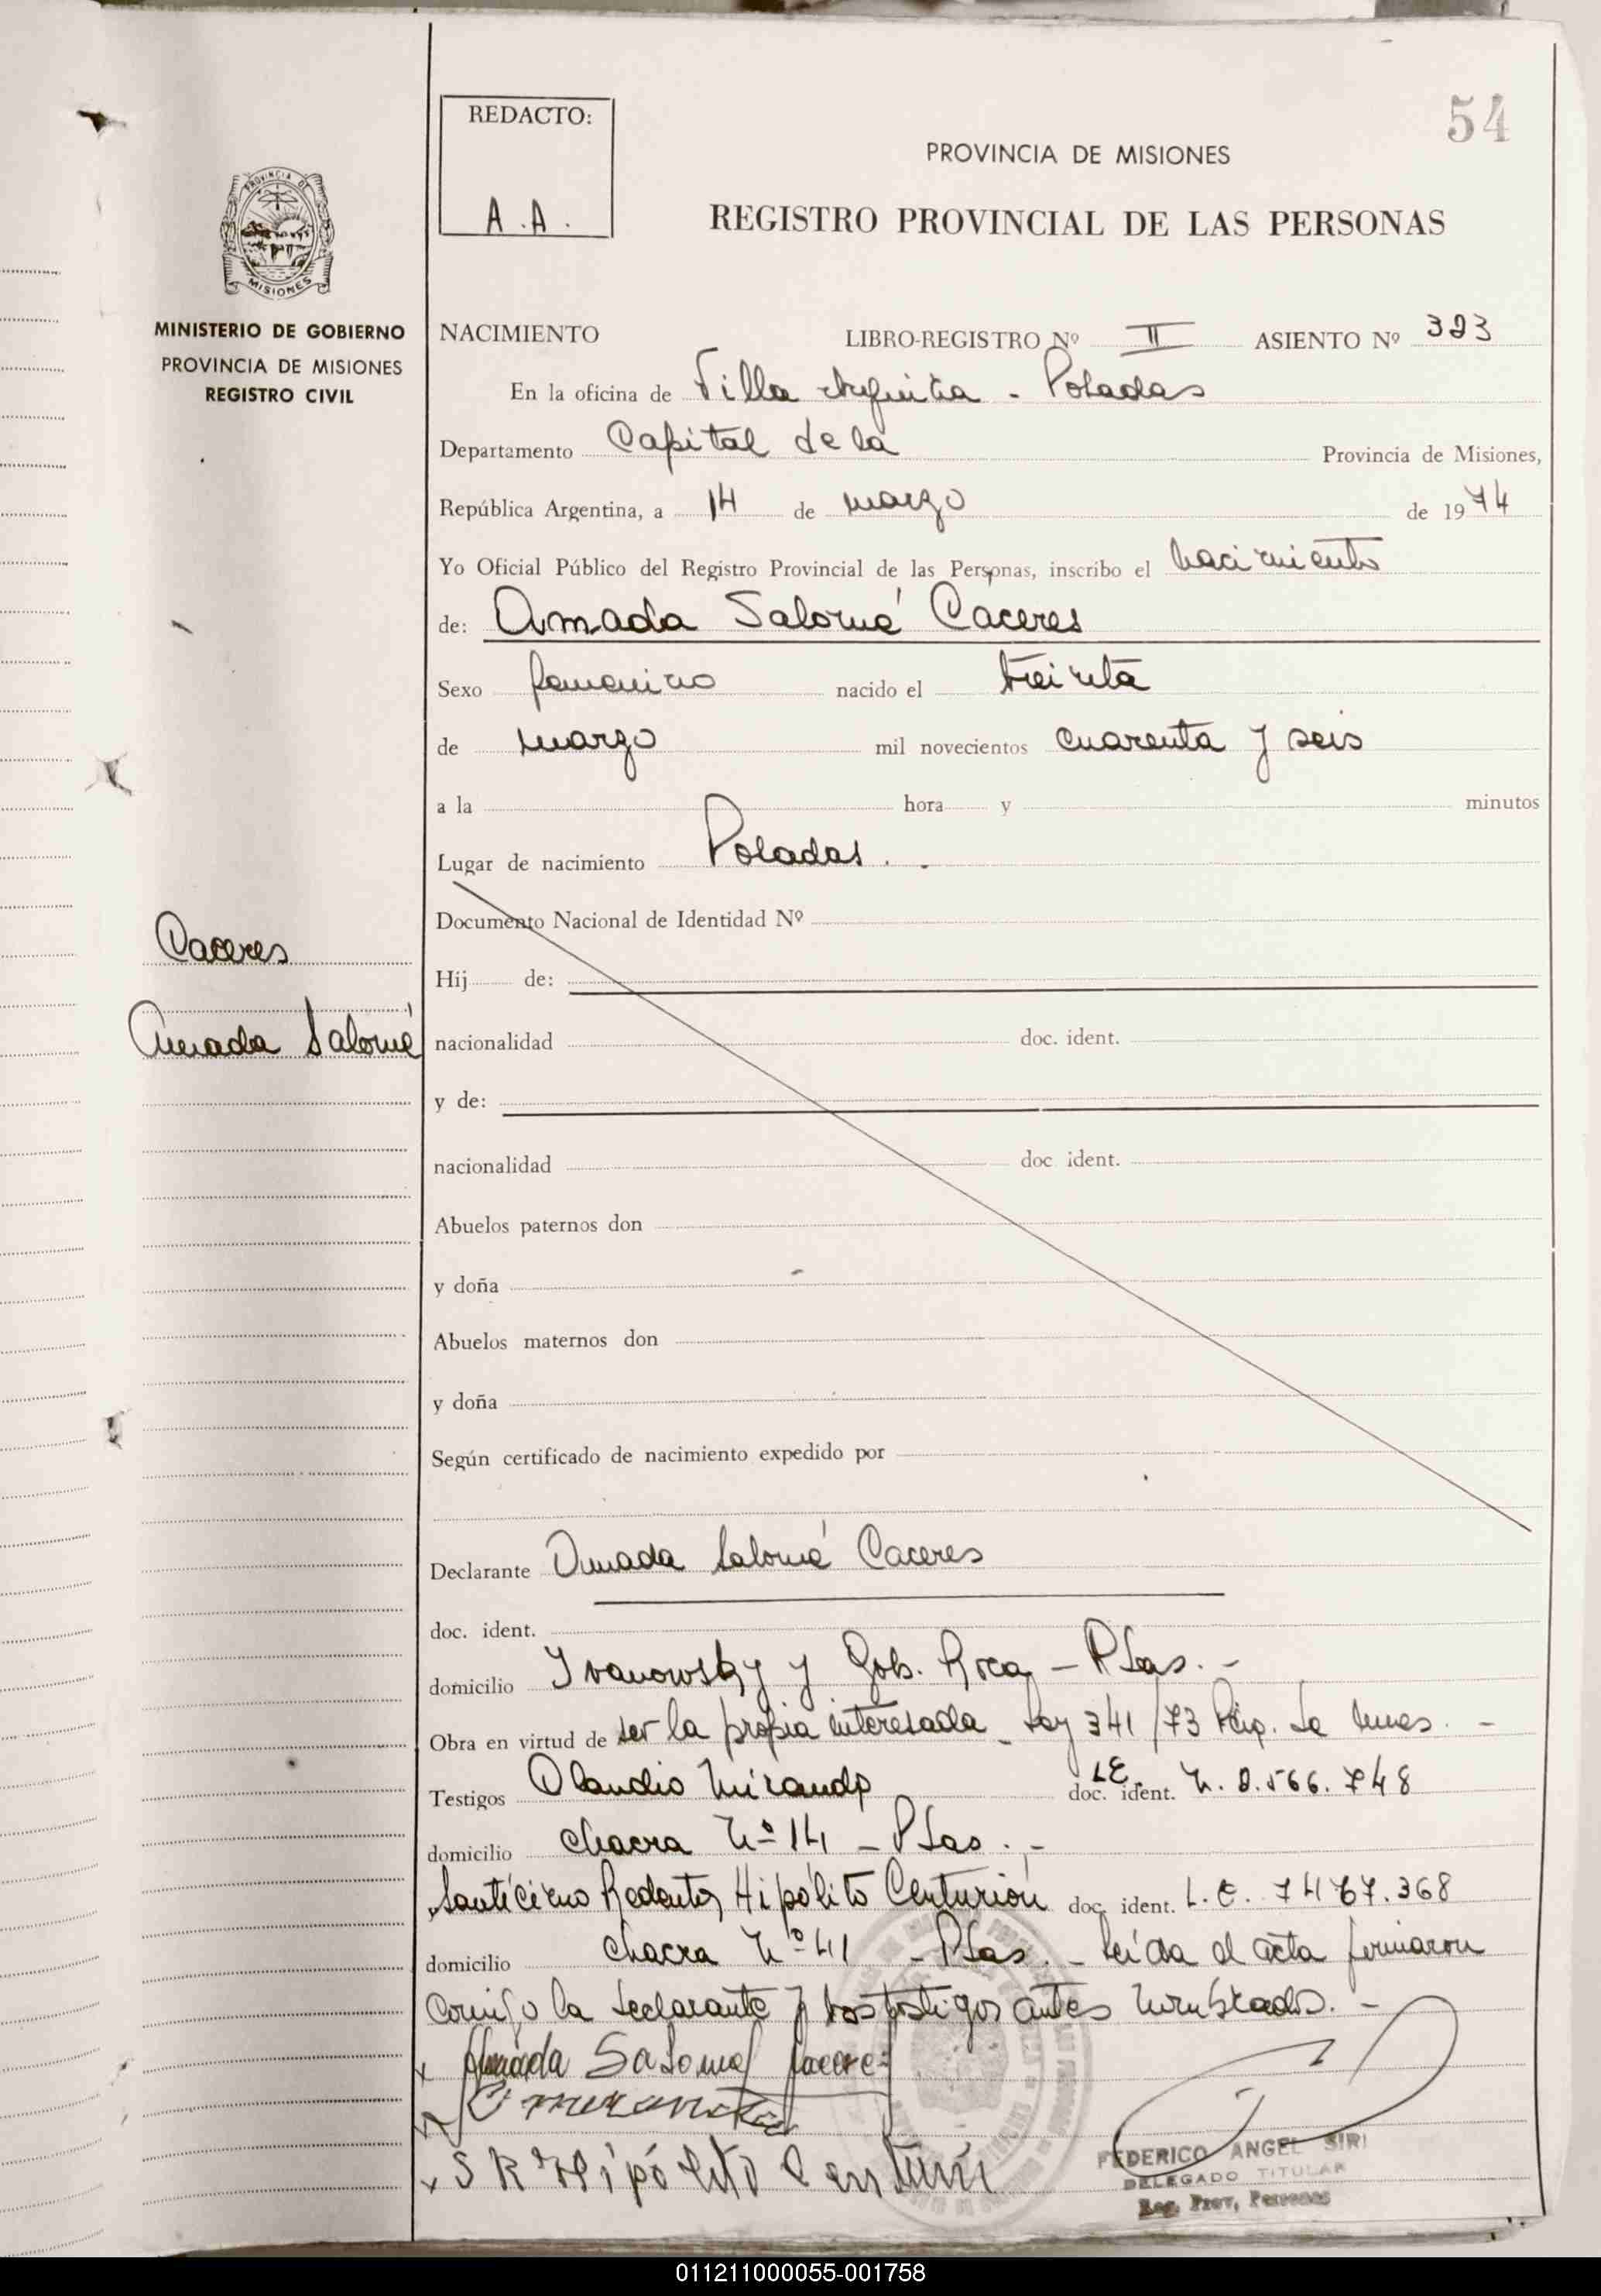 54
REDACTO:
A.A.
PROVINCIA DE MISIONES
REGISTRO PROVINCIAL DE LAS PERSONAS
PROVINCIA DE
MISIONES
MINISTERIO DE GOBIERNO
PROVINCIA DE MISIONES
REGISTRO CIVIL
NACIMIENTO LIBRO-REGISTRO Nº II ASIENTO Nº 393
En la oficina de Villa Posadas
Departamento Capital de la Provincia de Misiones,
República Argentina, a 14 de marzo de 1974
Yo Oficial Público del Registro Provincial de las Personas, inscribo el nacimiento
de: Amada Salomé Caceres
Sexo femenino nacido el treinta
de marzo mil novecientos cuarenta y seis
a la hora y minutos
Lugar de nacimiento Posadas.
Documento Nacional de Identidad Nº
Caceres
Hij de:
Amada Salomé
nacionalidad doc. ident.
y de:
nacionalidad doc ident.
Abuelos paternos don
y doña
Abuelos maternos don
y doña
Según certificado de nacimiento expedido por
Declarante Amada Salomé Caceres
doc. ident.
domicilio Ivanowsky y Gob. Roca - Psas. -
Obra en virtud de ser la propia interesada - Ley 341/73
Testigos Claudio Miranda L E. doc. ident. N. 8.566.748
domicilio Chacra Nº 14 - Psas. -
Santícimo Redentor Hipólito Centurión doc. ident. L. E. 7467.368
domicilio Chacra Nº 41 - Psas. - Leída el acta firmaron
conmigo la declarante y los testigos antes nombrados. -
x Amada Salomé Cacere
C Miranda
x S R Hipólito Centurión
FEDERICO ANGEL SIRI
DELEGADO TITULAR
Reg. Prov. Personas
011211000055-001758